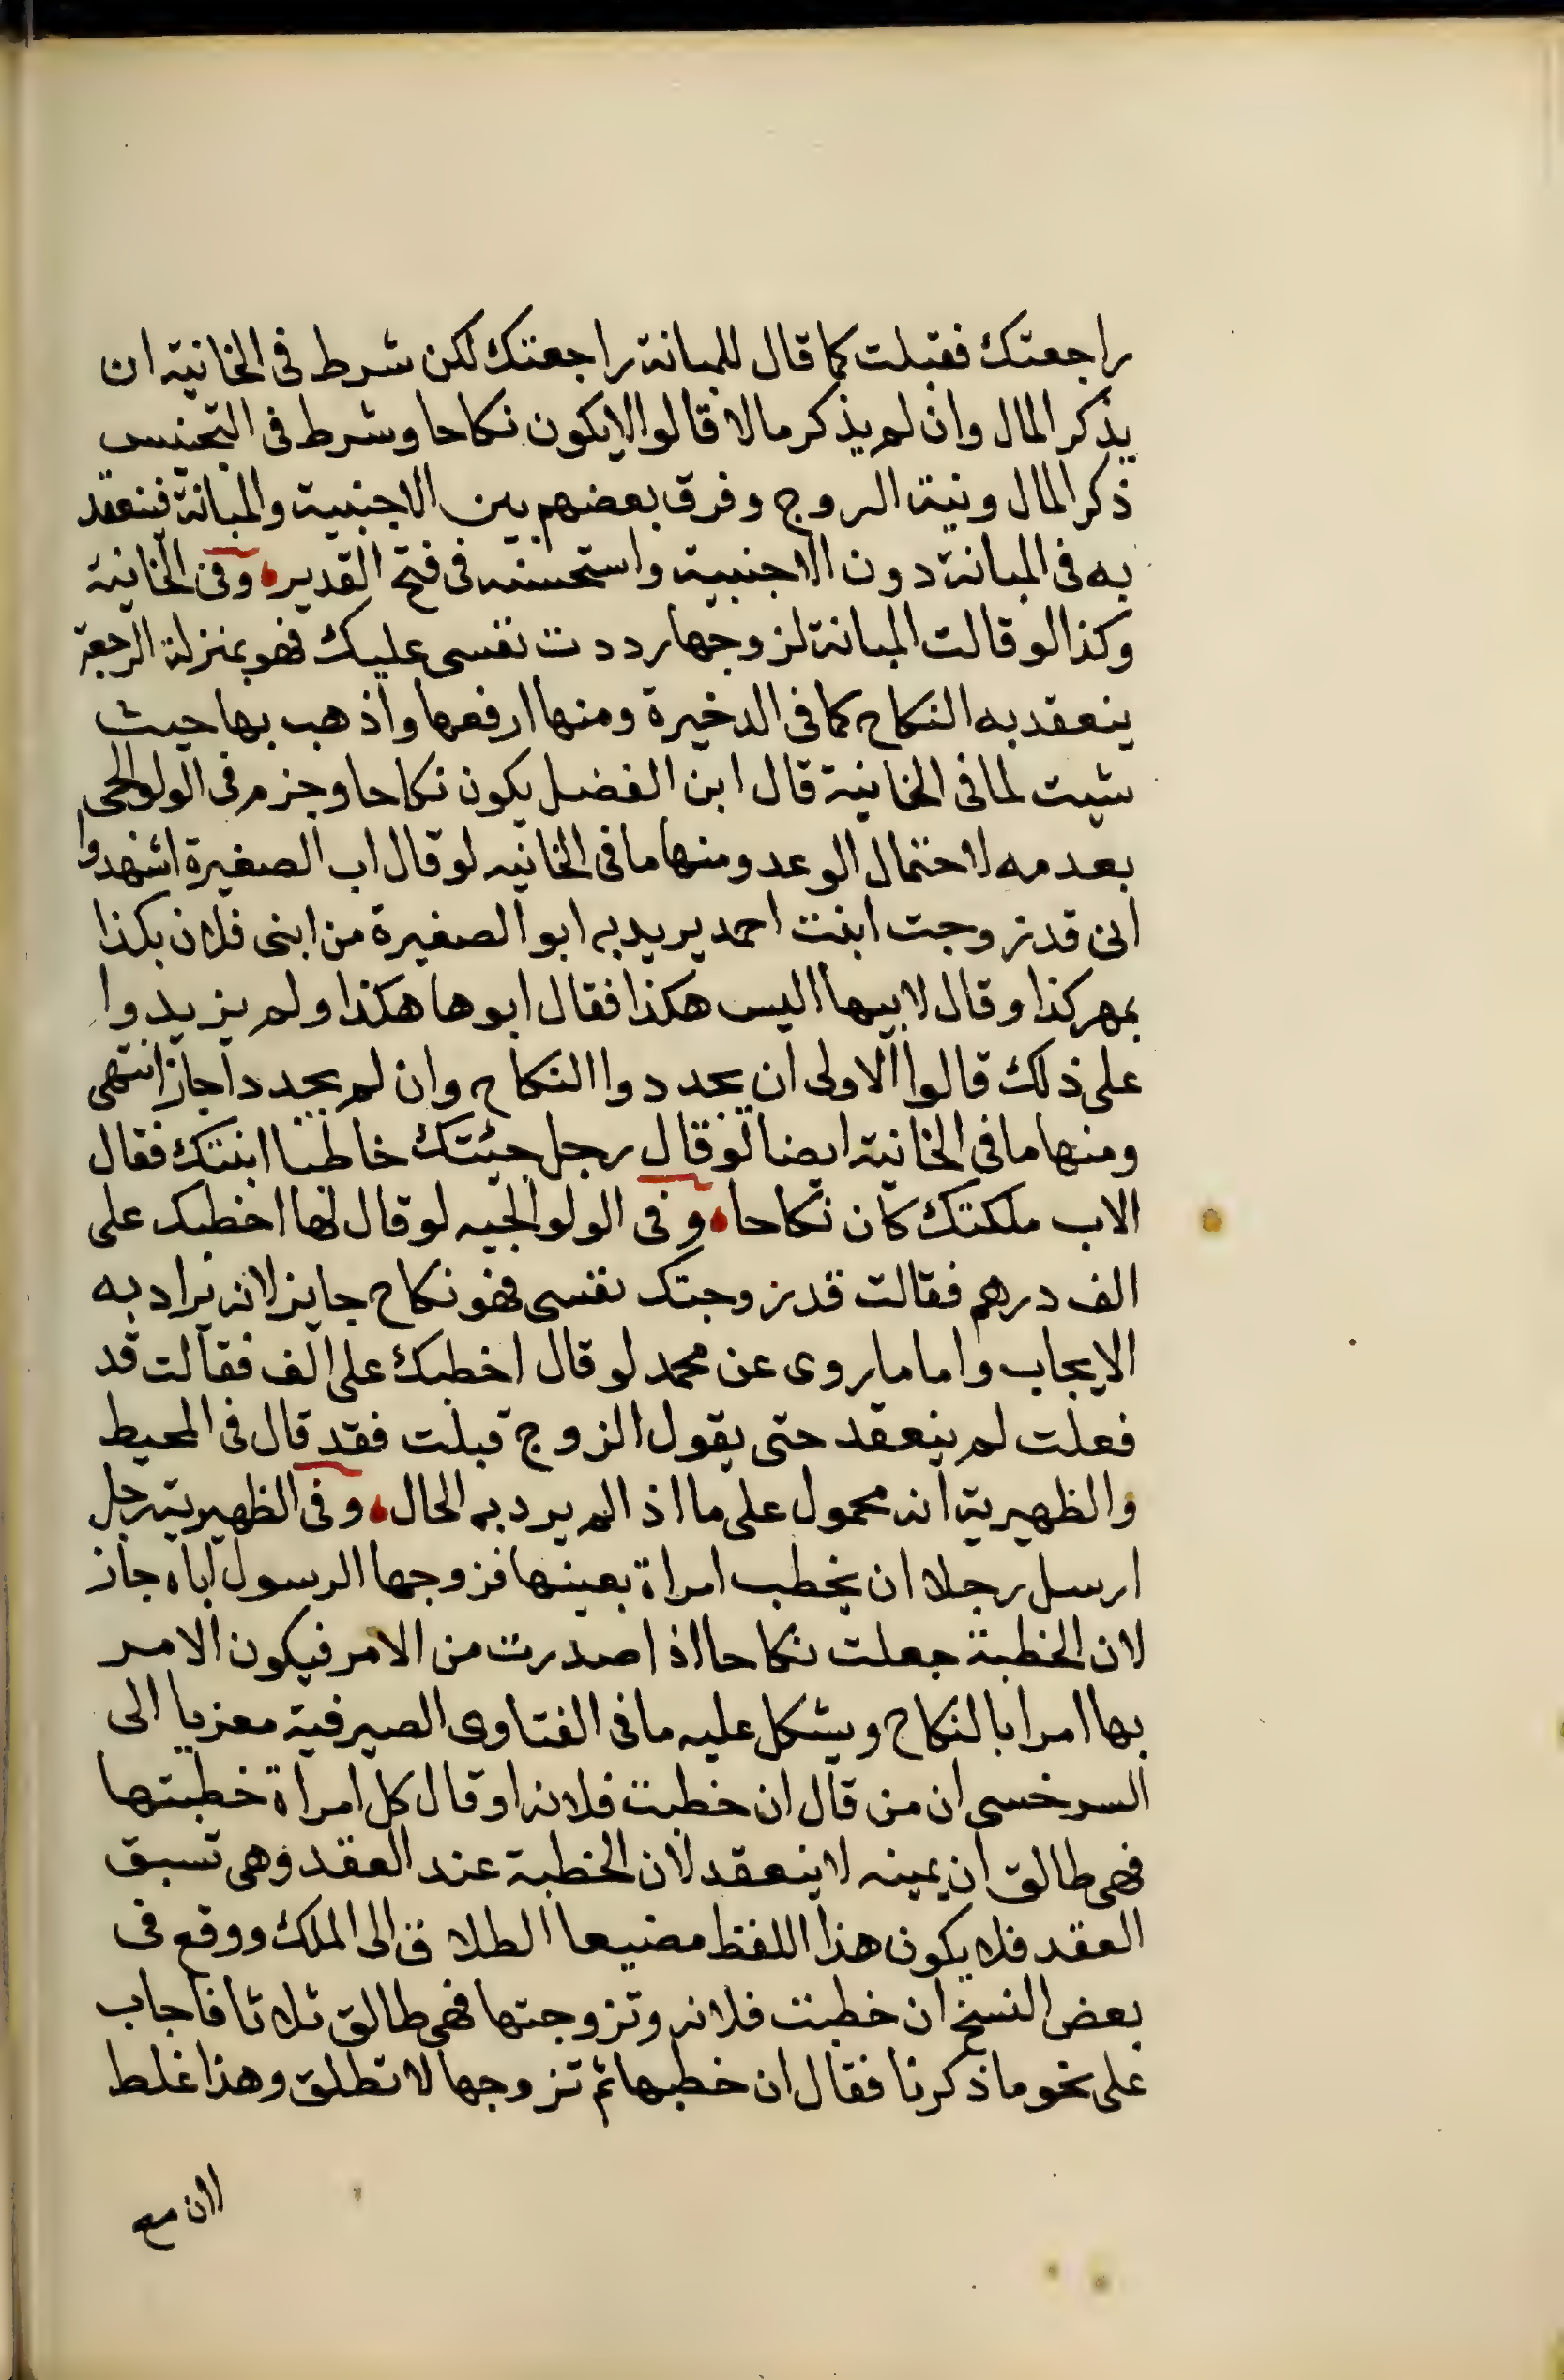 راجعتك فقبلت كما قال للمبانة راجعتك لكن شرط فى الخانية ان
يذكر المال وان لم يذكر مالا قالوا لا يكون نكاحا وشرط فى التجنيس
ذكر المال ونية الزوج وفرق بعضهم بين الاجنبية والمبانة فينعقد
به فى المبانة دون الاجنبية واستحسنه فى فتح القدير وفى الخانية
وكذا لو قالت المبانة لزوجها رددت نفسى عليك فهو بمنزلة الرجعة
ينعقد به النكاح كما فى الدخيرة ومنها ارفعها واذهب بها حيث
شيت لما فى الخانية قال ابن الفضل يكون نكاحا وجزم فى الولوالجى
بعدمه لاحتمال الوعد ومنها ما فى الخانيه لو قال اب الصغيرة اشهدوا
انى قد زوجت ابنت احمد يريد به ابو الصغيرة من ابنى فلان بكذا
بمهر كذا وقال لابيها اليس هكذا فقال ابوها هكذا ولم يزيدوا
على ذلك قالوا الاولى ان يجددوا النكاح وان لم يجددا جاز انتهى
ومنها ما فى الخانية ايضا لو قال رجل جئتك خاطبا ابنتك فقال
الاب ملكتك كان نكاحا وفى الولوالجيه لو قال لها اخطبك على
الف درهم فقالت قد زوجتك نفسى فهو نكاح جايز لانه يراد به
الايجاب واما ما روى عن محمد لو قال اخطبك على الف فقالت قد
فعلت لم ينعقد حتى يقول الزوج قبلت فقد قال فى المحيط
والظهيرية انه محمول على ما اذا لم يرد به الحال وفى الظهيرية رجل
ارسل رجلا ان يخطب امراة بعينها فزوجها الرسول اياه جاز
لان الخطبة جعلت نكاحا اذا صدرت من الامر فيكون الامر
بها امرا بالنكاح ويشكل عليه ما فى الفتاوى الصيرفية معزيا الى
السرخسى ان من قال ان خطبت فلانة او قال كل امراة خطبتها
فهى طالق ان يمينه لا ينعقد لان الخطبة عند العقد وهى تسبق
العقد فلا يكون هذا اللفظ مضيعا الطلاق الى الملك ووقع فى
بعض النسخ ان خطبت فلانه وتزوجتها فهى طالق ثلاثا فاجاب
على نحو ما ذكرنا فقال ان خطبها ثم تزوجها لا تطلق وهذا غلط